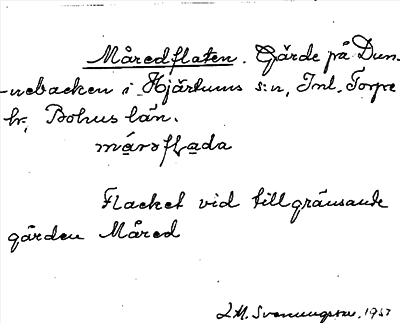 Måredflaten. Gärde på Dun-
nebacken i Hjärtums s:n, Inl. Torpe
hr, Bohus län.
märsflada
Flacket vid tillgränsande
gården Måred
Svenungsson, 1937